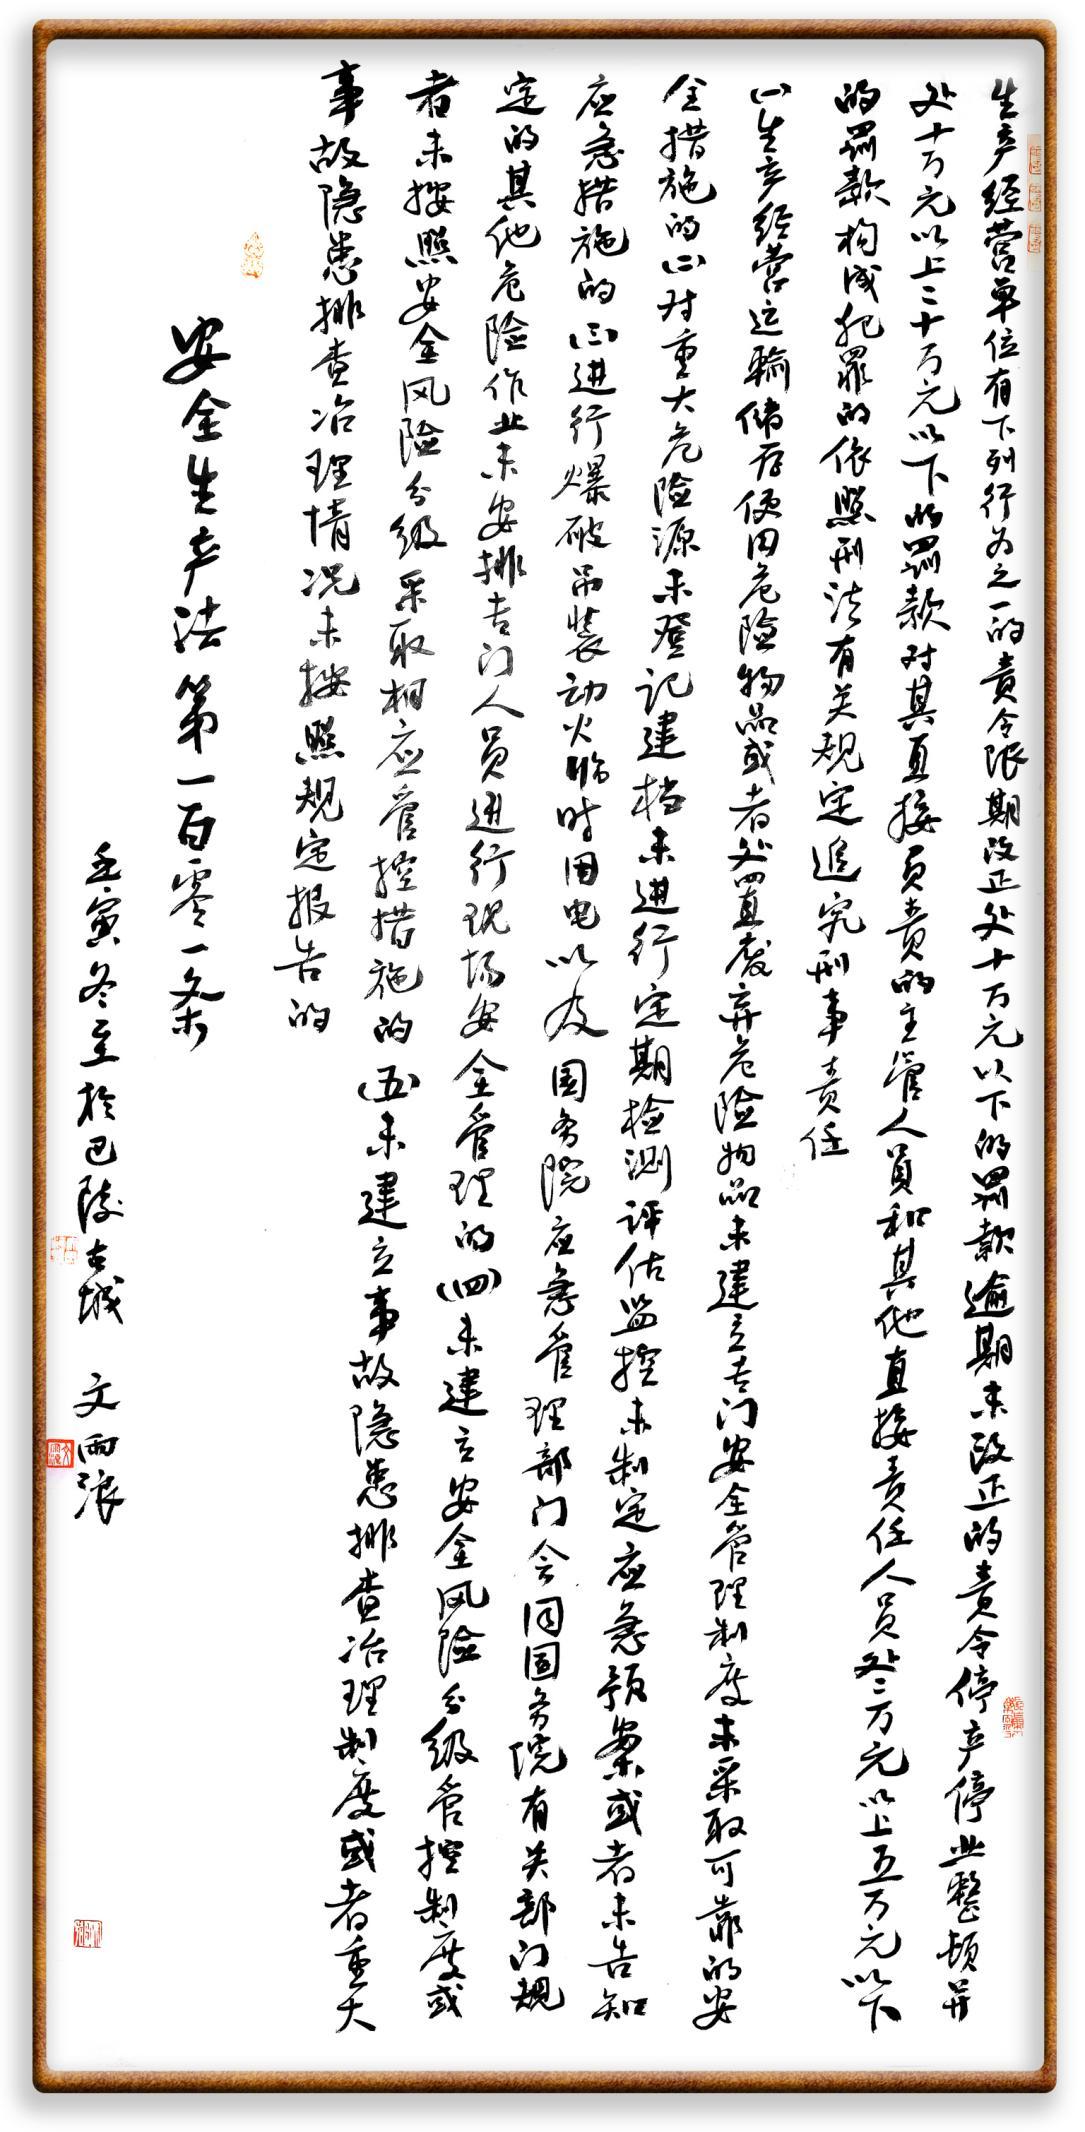 生产经营单位有下列行为之一的责令限期改正处十万元以下的罚款逾期未改正的责令停产停业整顿并
处十万元以上二十万元以下的罚款对其直接负责的主管人员和其他直接责任人员处二万元以上五万元以下
的罚款构成犯罪的依照刑法有关规定追究刑事责任
(一)生产经营运输储存使用危险物品或者处置废弃危险物品未建立专门安全管理制度未采取可靠的安
全措施的(二)对重大危险源未登记建档未进行定期检测评估监控未制定应急预案或者未告知
应急措施的(三)进行爆破吊装动火临时用电以及国务院应急管理部门会同国务院有关部门规
定的其他危险作业未安排专门人员进行现场安全管理的(四)未建立安全风险分级管控制度或
者未按照安全风险分级采取相应管控措施的(五)未建立事故隐患排查治理制度或者重大
事故隐患排查治理情况未按照规定报告的
安全生产法第一百零一条
壬寅冬至於巴陵古城 文雨浪